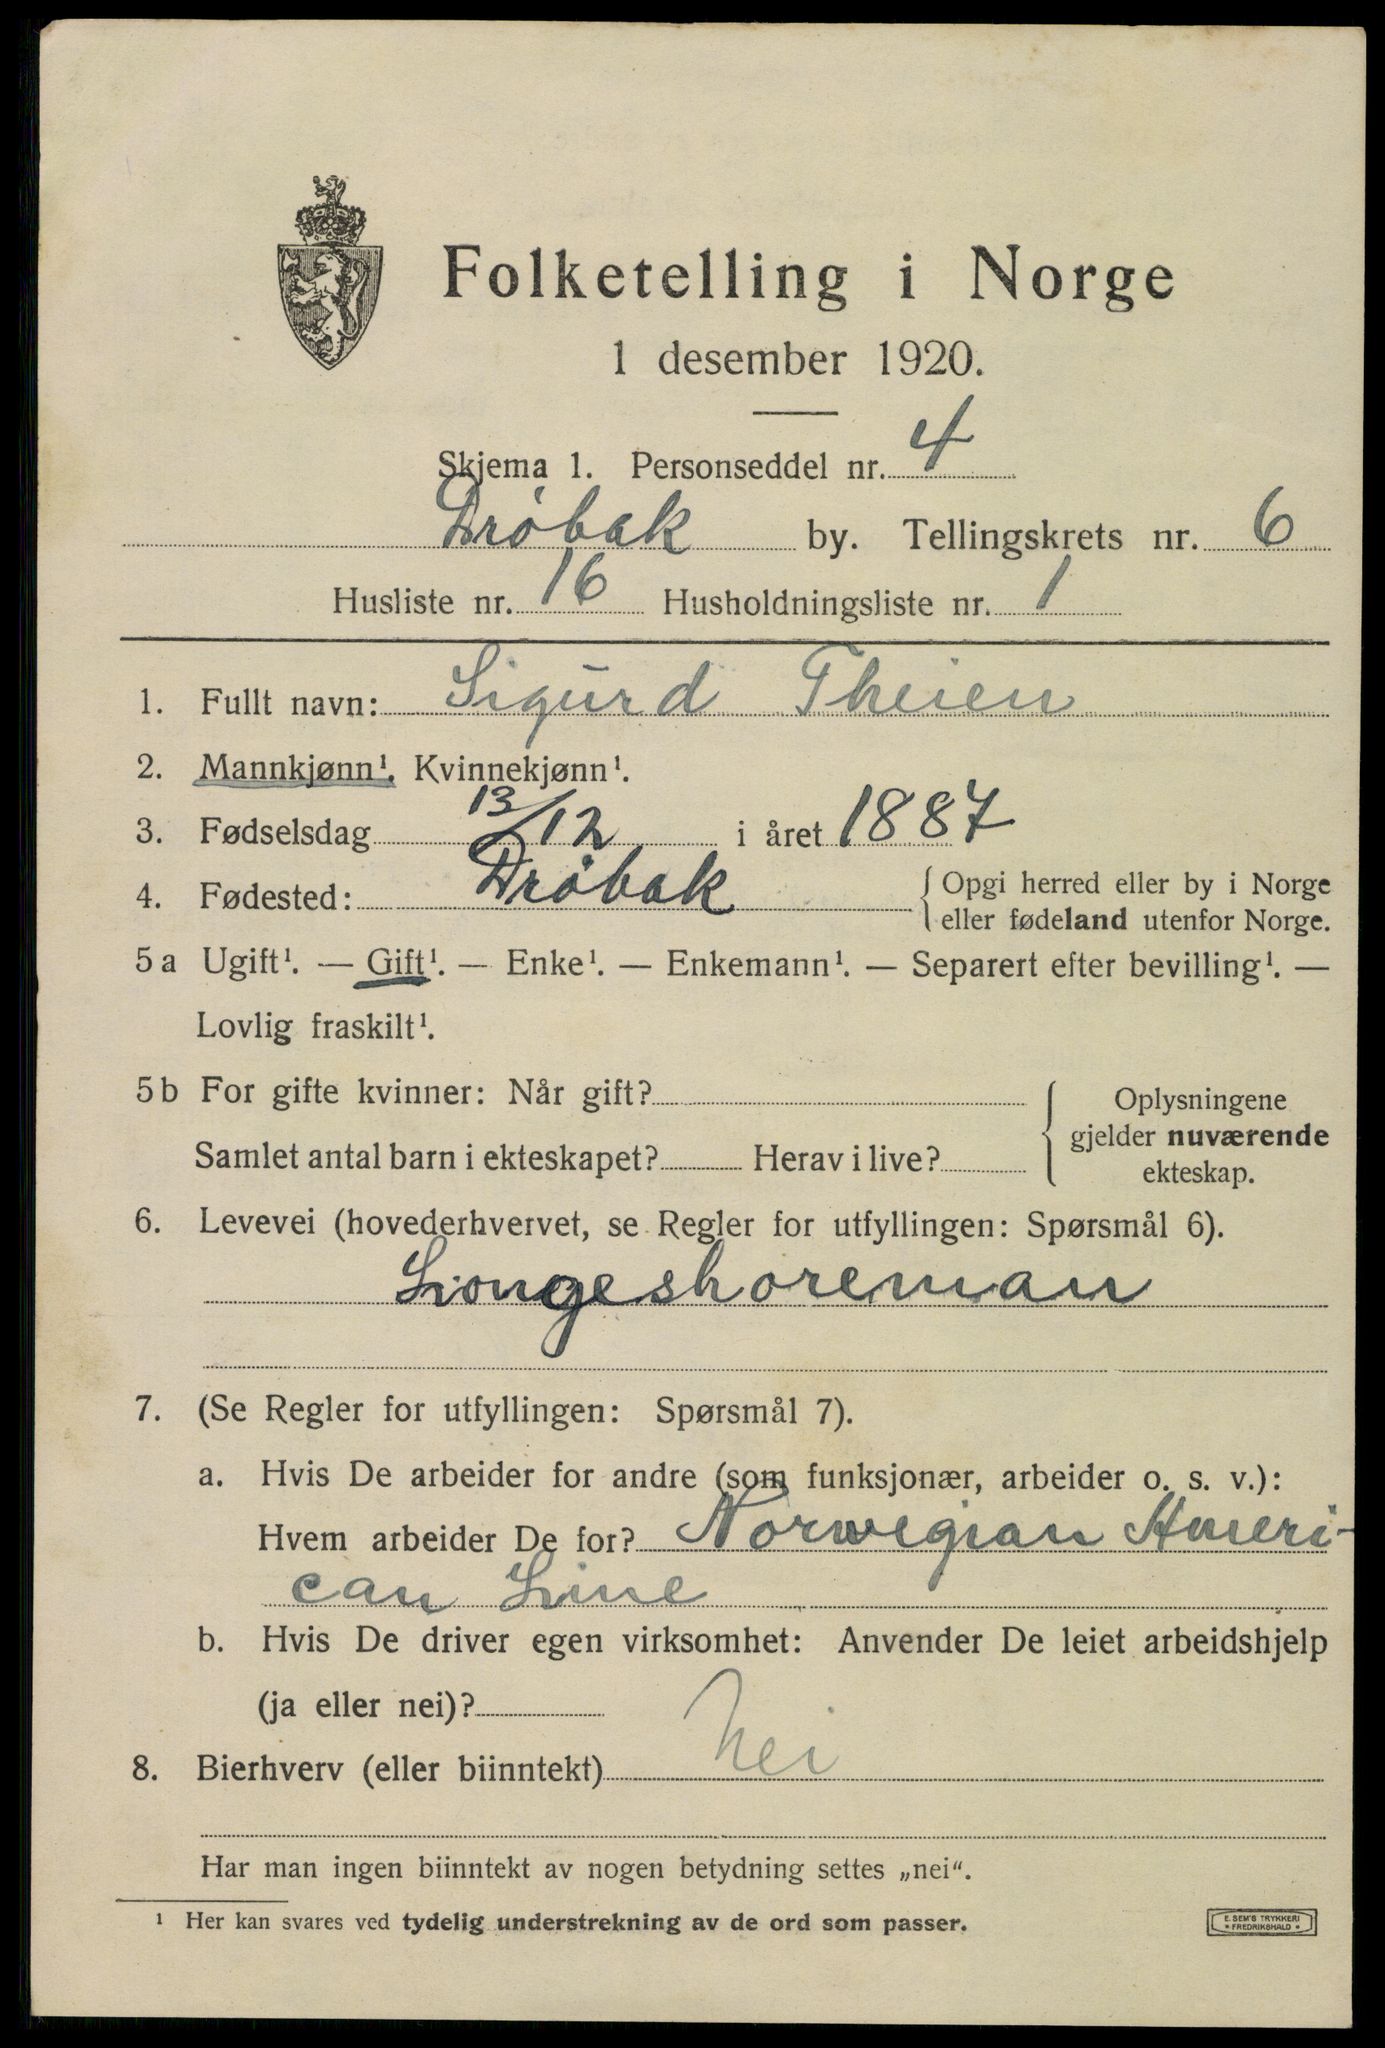 Folketelling i Norge
1 desember 1920.
Skjema 1. Personseddel nr. 4
Drøbak by. Tellingskrets nr. 6
Husliste nr. 16 Husholdningsliste nr. 1
1. Fullt navn: Sigurd Theien
2. Mannkjønn¹. Kvinnekjønn¹.
3. Fødselsdag 13/12 i året 1887
4. Fødested: Drøbak { Opgi herred eller by i Norge
eller fødeland utenfor Norge.
5a Ugift¹. — Gift¹. — Enke¹. — Enkemann¹. — Separert efter bevilling¹. —
Lovlig fraskilt¹.
5b For gifte kvinner: Når gift?
Samlet antal barn i ekteskapet? Herav i live?
{ Oplysningene
gjelder nuværende
ekteskap.
6. Levevei (hovederhvervet, se Regler for utfyllingen: Spørsmål 6).
Longeshoreman
7. (Se Regler for utfyllingen: Spørsmål 7).
a. Hvis De arbeider for andre (som funksjonær, arbeider o. s. v.):
Hvem arbeider De for? Norwegian Ameri-
can Line
b. Hvis De driver egen virksomhet: Anvender De leiet arbeidshjelp
(ja eller nei)?
8. Bierhverv (eller biinntekt) Nei
Har man ingen biinntekt av nogen betydning settes „nei“.
¹ Her kan svares ved tydelig understrekning av de ord som passer.
E. SEM'S TRYKKERI
* FREDRIKSHALD *